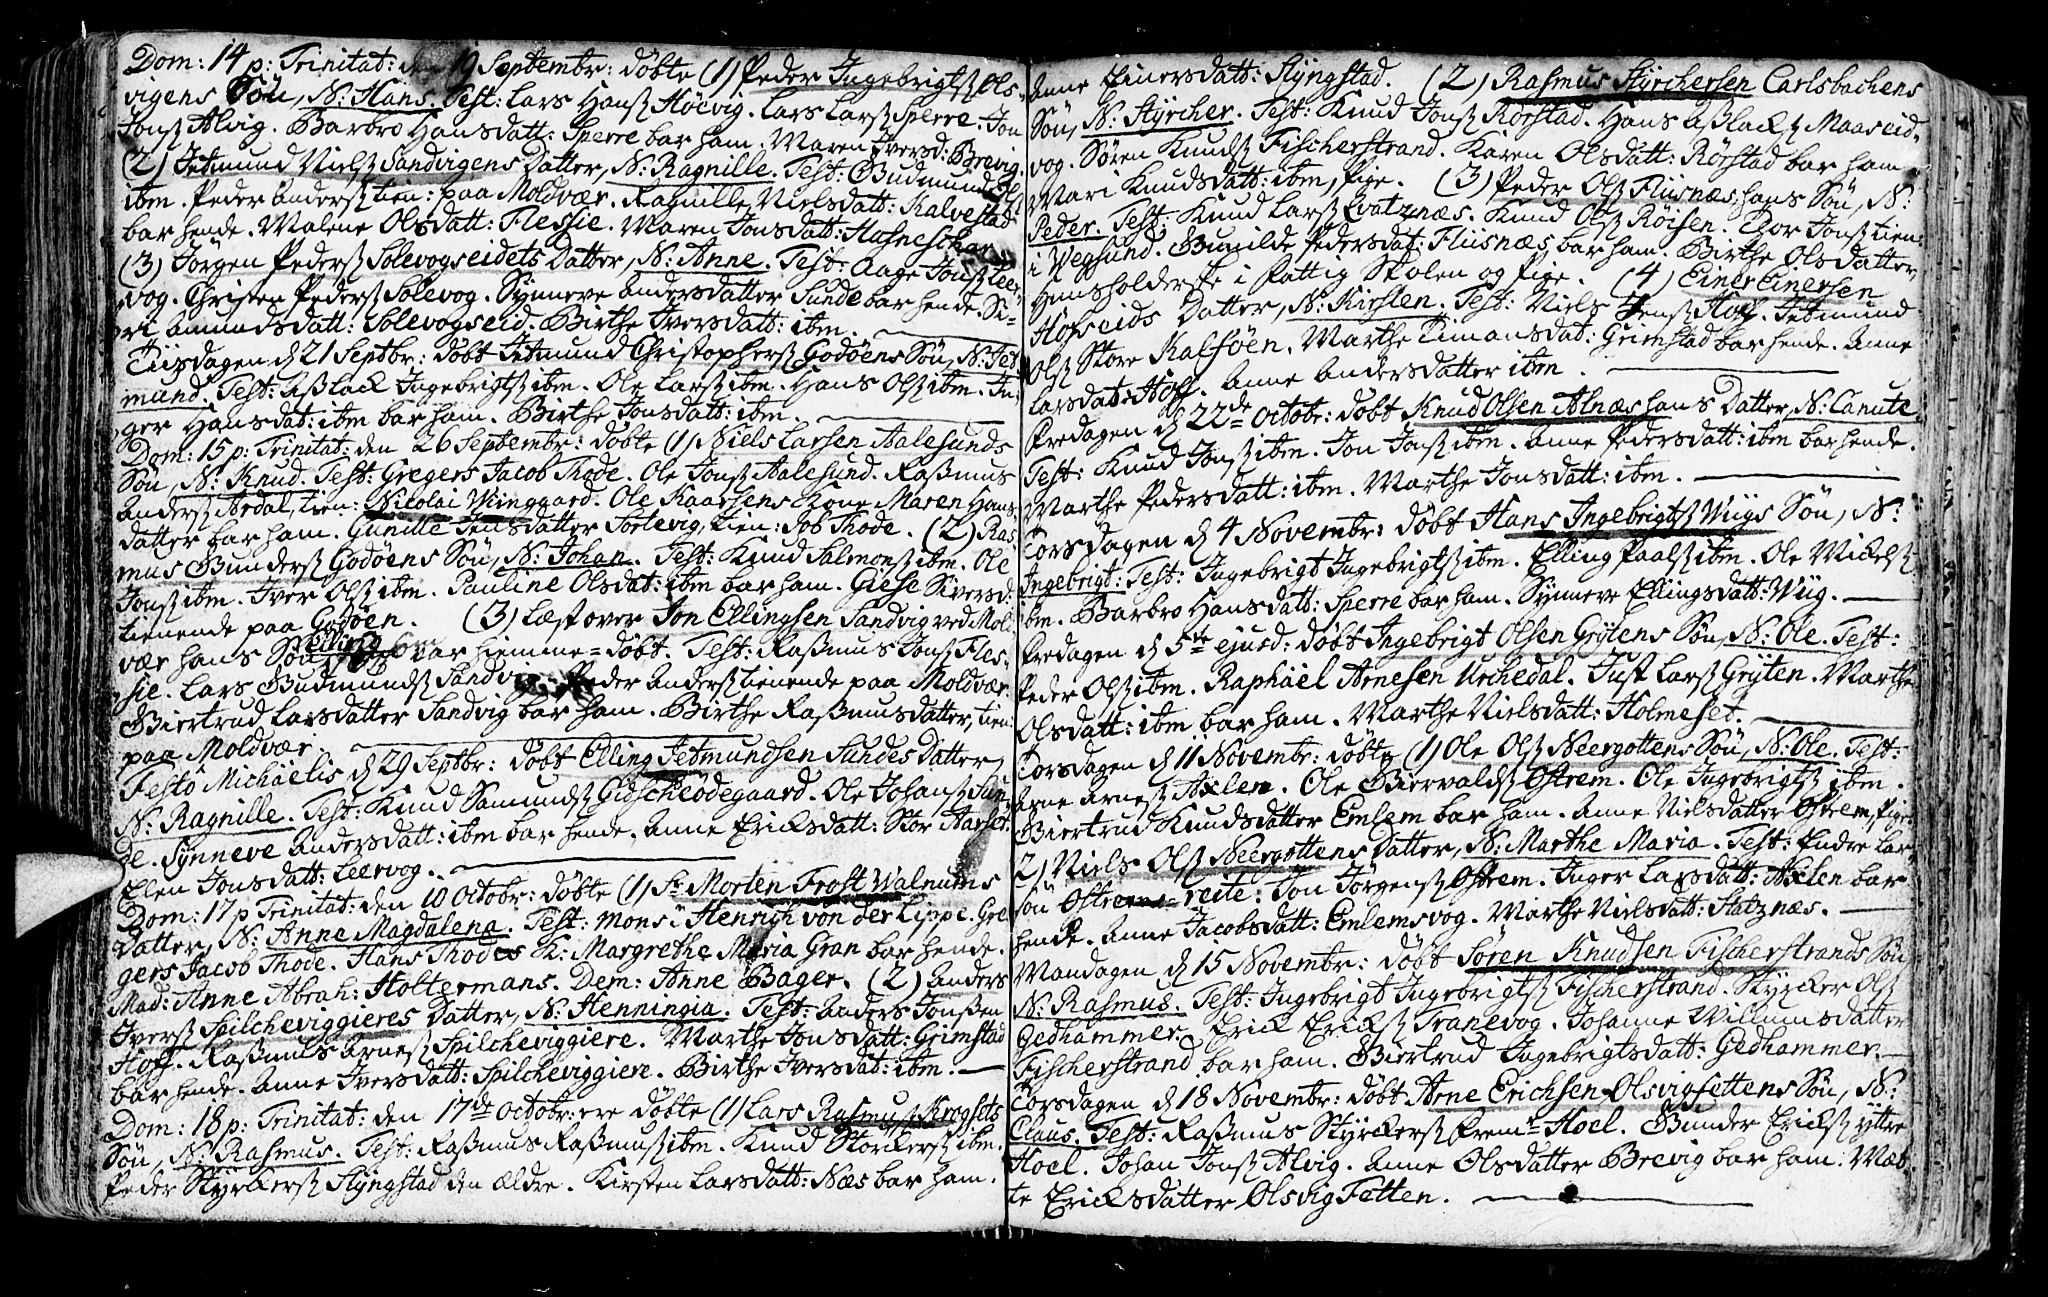 Dom: 14 p: Trinitat: den 19 Septembr: döbte (1) Peder Ingebrigtß Ols-
vigens Sön, N: Hans. Test: Lars Hanß Höevig. Lars Larß Sperre. Jon
Jonß Alvig. Barbro Hansdatt: Sperre bar ham. Maren Iversd: Brevig.
(2) Jetmund Nielß Sandvigens Datter, N: Ragnille. Test: Gudmund
ibm. Peder Anderß tien: paa Moldvær. Ragnille Nielsdatt: Kalvestad
bar hende. Malene Olsdatt: Flessie. Maren Jonsdatt: Husneschar
(3) Jörgen Pederß Solevogseidets Datter, N: Anne. Test: Aage Jonß Leer-
vog. Christen Pederß Solevog. Synneve Andersdatter Sunde bar hende. Si-
ri Amundsdatt: Solevogseid. Birthe Iversdatt: ibm.
Tiisdagen d 21 Septbr: döbt Jetmund Christopherß Godöens Sön, N: Jet
mund. Test: Aßlack Ingebrigtß ibm. Ole Larß ibm. Hans Olß ibm. In-
ger Hansdat: ibm bar ham. Birthe Jonsdatt: ibm.
Dom: 15 p: Trinitat: den 26 Septembr: döbte (1) Niels Larsen Aalesunds
Sön, N: Knud. Test: Gregers Jacob Thode. Ole Jonß Aalesund. Raßmus
Anderß Ardal, tien: Nicolai Wiingaard. Ole Kaarsens Kone Maren Hans-
datter bar ham. Gunille Jensdatter Sortevig, tien: Job Thode. (2) Ras
mus Gunderß Godöens Sön, N: Johan. Test: Knud Salmonß ibm. Ole
Jonß ibm. Iver Olß ibm. Pauline Olsdat: ibm bar ham. Giese Siversd:
tienende paa Godöen. (3) Læst over Jon Ellingsen Sandvig ved Mol-
vær hans Sön Elling som var hiemme-döbt. Test: Raßmus Jonß Fles-
sie. Lars Gudmundß Sandvig. Peder Anderß tienende paa Moldvær.
Giertrud Larsdatter Sandvig bar ham. Birthe Raßmusdatter, tien:
paa Moldvær.
Festo Michaëlis d 29 Septbr: döbt Elling Jetmundsen Sundes Datter,
N: Ragnille. Test: Knud Samundß Gidscheödegaard. Ole Johanß Sun-
de. Synneve Andersdatt: ibm bar hende. Anne Ericksdatt: Stor Aarset.
Elen Jonsdatt: Leervog.
Dom: 17 p Trinitat: den 10 Octobr: döbte (1) Sr Morten Frost Walnums
Datter, N: Anne Magdalena. Test: Mons: Henrich von der Lippe. Gre
gers Jacob Thode. Hans Thodes K: Margrethe Maria Gran bar hende.
Mad: Anne Abrah: Holtermans. Dem: Anne Bager. (2) Anders
Iverß Spilcheviggieres Datter, N: Henningia. Test: Anders Jonßen
Hoff. Raßmus Arneß Spilcheviggiere. Marthe Jonsdatt: Grimstad
bar hende. Anne Iversdatt: Spilcheviggiere. Birthe Iversdat: ibm.
Dom: 18 p: Trinitat: den 17de Octobr: ere döbte (1) Lars Rasmusß Krogsets
Sön, N: Rasmus. Test: Raßmus Raßmusß ibm. Knud Storckerß ibm.
Peder Styrckerß Slyngstad den ældre. Kirsten Larsdatt: Næs bar ham.
Anne Einersdatt: Slyngstad. (2) Rasmus Styrchersen Carlsbachens
Sön, N: Styrcher. Test: Knud Jonß Rörstad. Hans Aßlackß Maaseid-
vog. Sören Knudß Fischerstrand. Karen Olsdatt: Rörstad bar ham
Mari Knudsdatt: ibm, Pige. (3) Peder Olß Fliisnæs, hans Sön, N:
Peder. Test: Knud Larß Evatznæs. Knud Olß Röisen. Thor Jonß tien:
i Vegsund. Gunilde Pedersdat: Fliisnæs bar ham. Birthe Olsdatter,
Huusholderske i Fattig Skolen og Pige. (4) Einer Einersen
Hofseids Datter, N: Kirsten. Test: Niels Jenß Hoff. Jetmund
Olß Store Kalföen. Marthe Timansdat: Grimstad bar hende. Anne
Larsdat: Hoff. Anne Andersdatter ibm.
Fredagen d 22de Octobr: döbt Knud Olsen Alnæs hans Datter, N: Canute.
Test: Knud Jonß ibm. Jon Jonß ibm. Anne Pedersdatt: ibm bar hende.
Marthe Pedersdatt: ibm. Marthe Jonsdatt: ibm.
Torsdagen d 4 Novembr: döbt Hans Ingebrigtß Wiigs Sön, N:
Ingebrigt: Test: Ingebrigt Ingebrigtß ibm. Elling Paalß ibm. Ole Mickelß
ibm. Barbro Hansdatt: Sperre bar ham. Synneve Ellingsdatt: Wiig.
Fredagen d 5te ejusd: döbt Ingebrigt Olsen Grytens Sön, N: Ole. Test:
Peder Olß ibm. Raphaël Arnesen Urchedal. Just Larß Gryten. Marthe
Olsdatt: ibm bar ham. Marthe Nielsdatt: Holmeset.
Torsdagen d 11 Novembr: döbte (1) Ole Olß Neergottens Sön, N: Ole. Test:
Arne Arneß Axlen. Ole Giervaldß Östrem. Ole Ingebrigtß ibm.
Giertrud Knudsdatter Emlem bar ham. Anne Nielsdatter Östrem, Pige.
2) Niels Olß Neergottens Datter, N: Marthe Maria. Test: Endre Lar-
sön Östrems-reite: Jon Jörgenß Östrem. Inger Larsdatt: Axlen bar
hende. Anne Jacobsdatt: Emlemsvog. Marthe Nielsdatt: Slatznæs.
Mandagen d 15 Novembr: döbt Sören Knudsen Fischerstrands Sön
N: Rasmus. Test: Ingebrigt Ingebrigtß Fischerstrand. Styrcker Olß
Gedhammer. Erick Erickß Tranevog. Johanne Willumsdatter
Fischerstrand bar ham. Giertrud Ingebrigtsdatt: Gedhammer.
Torsdagen d 18 Novembr: döbt Arne Erichsen Olsvigfettens Sön, N:
Claus. Test: Raßmus Styrckerß Frem-Hoel. Gunder Erickß yttre
Hoel. Johan Jonß Alvig. Anne Olsdatter Brevig bar ham. Mæt-
te Ericksdatter Olsvig Fetten.